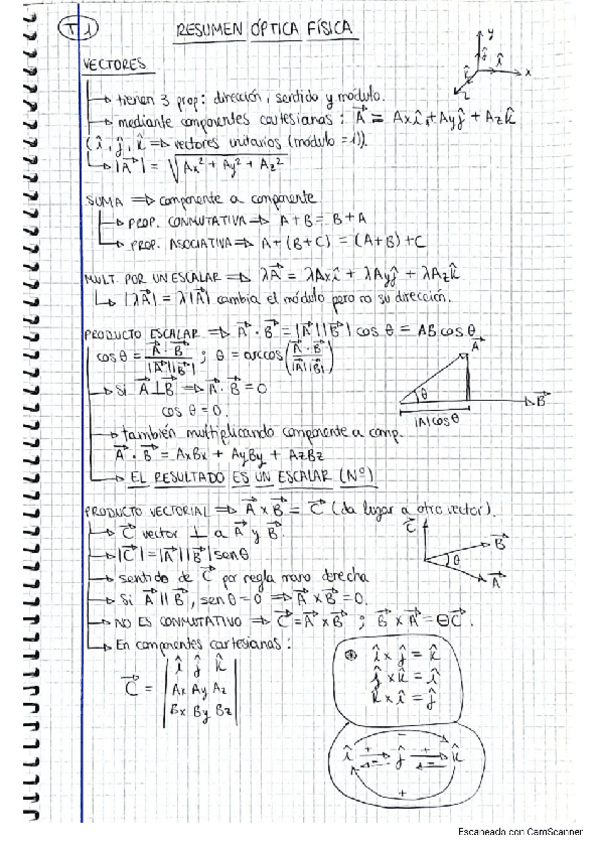 T1
RESUMEN ÓPTICA FÍSICA
VECTORES
tienen 3 prop: dirección, sentido y módulo.
mediante componentes cartesianas: A⃗ = Axî + Ayĵ + Azk̂
(î, ĵ, k̂ ⇒ vectores unitarios (módulo = 1)).
|A⃗| = √(Ax² + Ay² + Az²)
y
ĵ
î
x
z
SUMA ⇒ componente a componente
PROP. CONMUTATIVA ⇒ A+B = B+A
PROP. ASOCIATIVA ⇒ A+(B+C) = (A+B)+C
MULT. POR UN ESCALAR ⇒ λA⃗ = λAxî + λAyĵ + λAzk̂
|λA⃗| = λ|A⃗| cambia el módulo pero no su dirección.
PRODUCTO ESCALAR ⇒ A⃗ · B⃗ = |A⃗||B⃗| cos θ = AB cos θ
cos θ = A⃗ · B⃗ / |A⃗||B⃗| ; θ = arccos(A⃗ · B⃗ / |A⃗||B⃗|)
Si A⃗ ⊥ B⃗ ⇒ A⃗ · B⃗ = 0
cos θ = 0.
A⃗
θ
B⃗
|A| cos θ
también multiplicando componente a comp.
A⃗ · B⃗ = AxBx + AyBy + AzBz
EL RESULTADO ES UN ESCALAR (Nº)
PRODUCTO VECTORIAL ⇒ A⃗ x B⃗ = C⃗ (da lugar a otro vector).
C⃗ vector ⊥ a A⃗ y B⃗.
|C⃗| = |A⃗||B⃗| sen θ
sentido de C⃗ por regla mano derecha
Si A⃗ || B⃗, sen θ = 0 ⇒ A⃗ x B⃗ = 0.
NO ES CONMUTATIVO ⇒ C⃗ = A⃗ x B⃗ ; B⃗ x A⃗ = ⊖C⃗.
C⃗
B⃗
θ
A⃗
En componentes cartesianas:
C⃗ = | î ĵ k̂ |
| Ax Ay Az |
| Bx By Bz |
î x ĵ = k̂
ĵ x k̂ = î
k̂ x î = ĵ
−
î + ĵ + k̂
− −
+
Escaneado con CamScanner